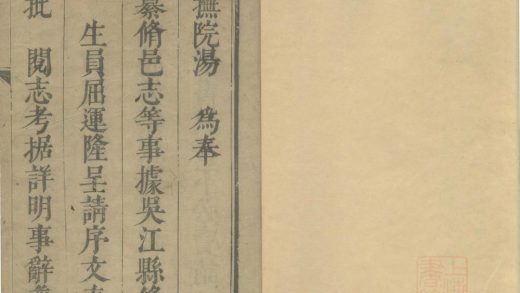 撫院湯　為奉
纂脩邑志等事據吳江縣
生員屈運隆呈請序文
批　閱志考据詳明事辭